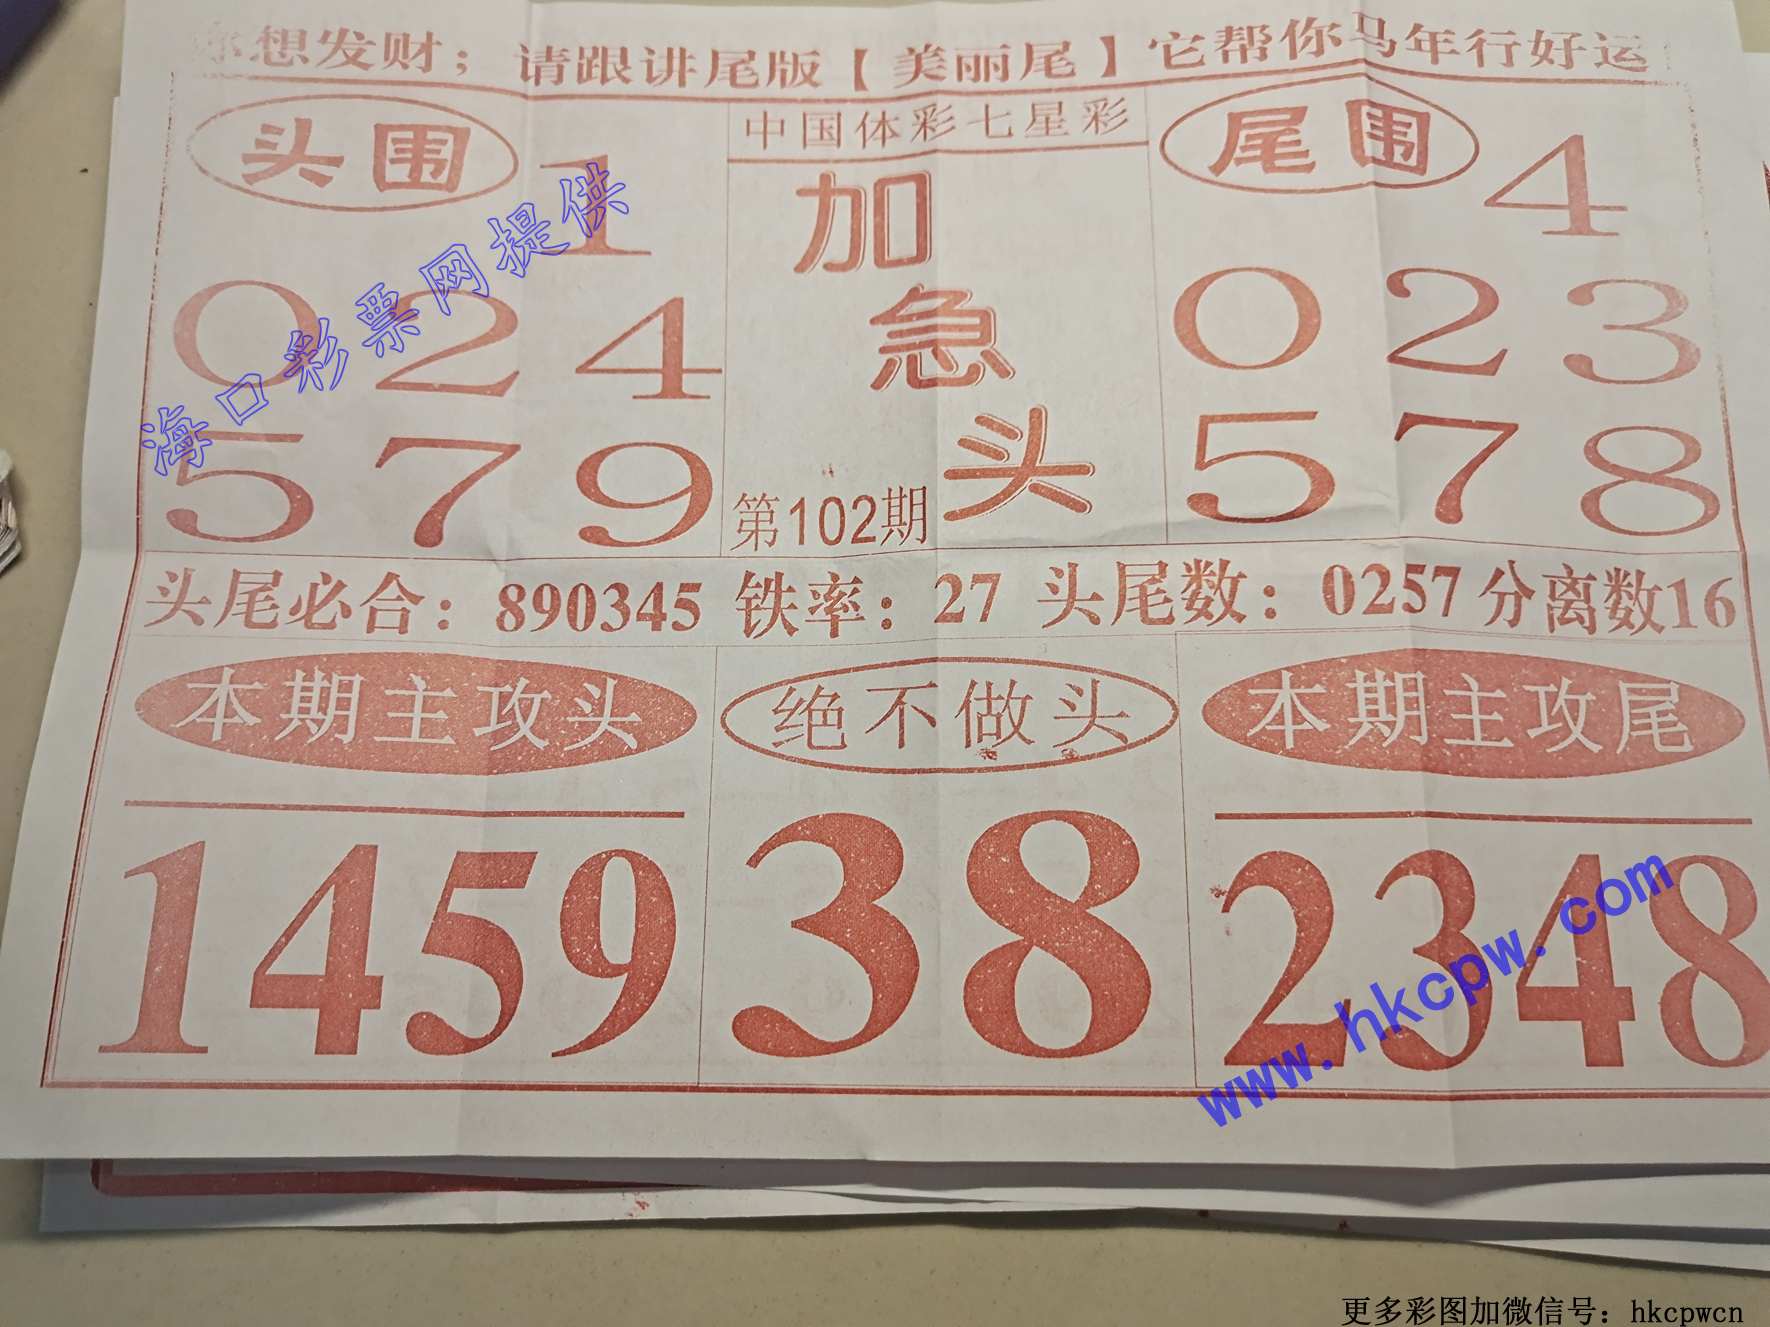 你想发财；请跟讲尾版【美丽尾】它帮你马年行好运
头围
1
0 2 4
5 7 9
中国体彩七星彩
加
急
头
第102期
尾围
4
0 2 3
5 7 8
头尾必合：890345 铁率：27 头尾数：0257 分离数16
本期主攻头
1459
绝不做头
38
本期主攻尾
2348
海口彩票网提供
www.hkcpw.com
更多彩图加微信号：hkcpwcn